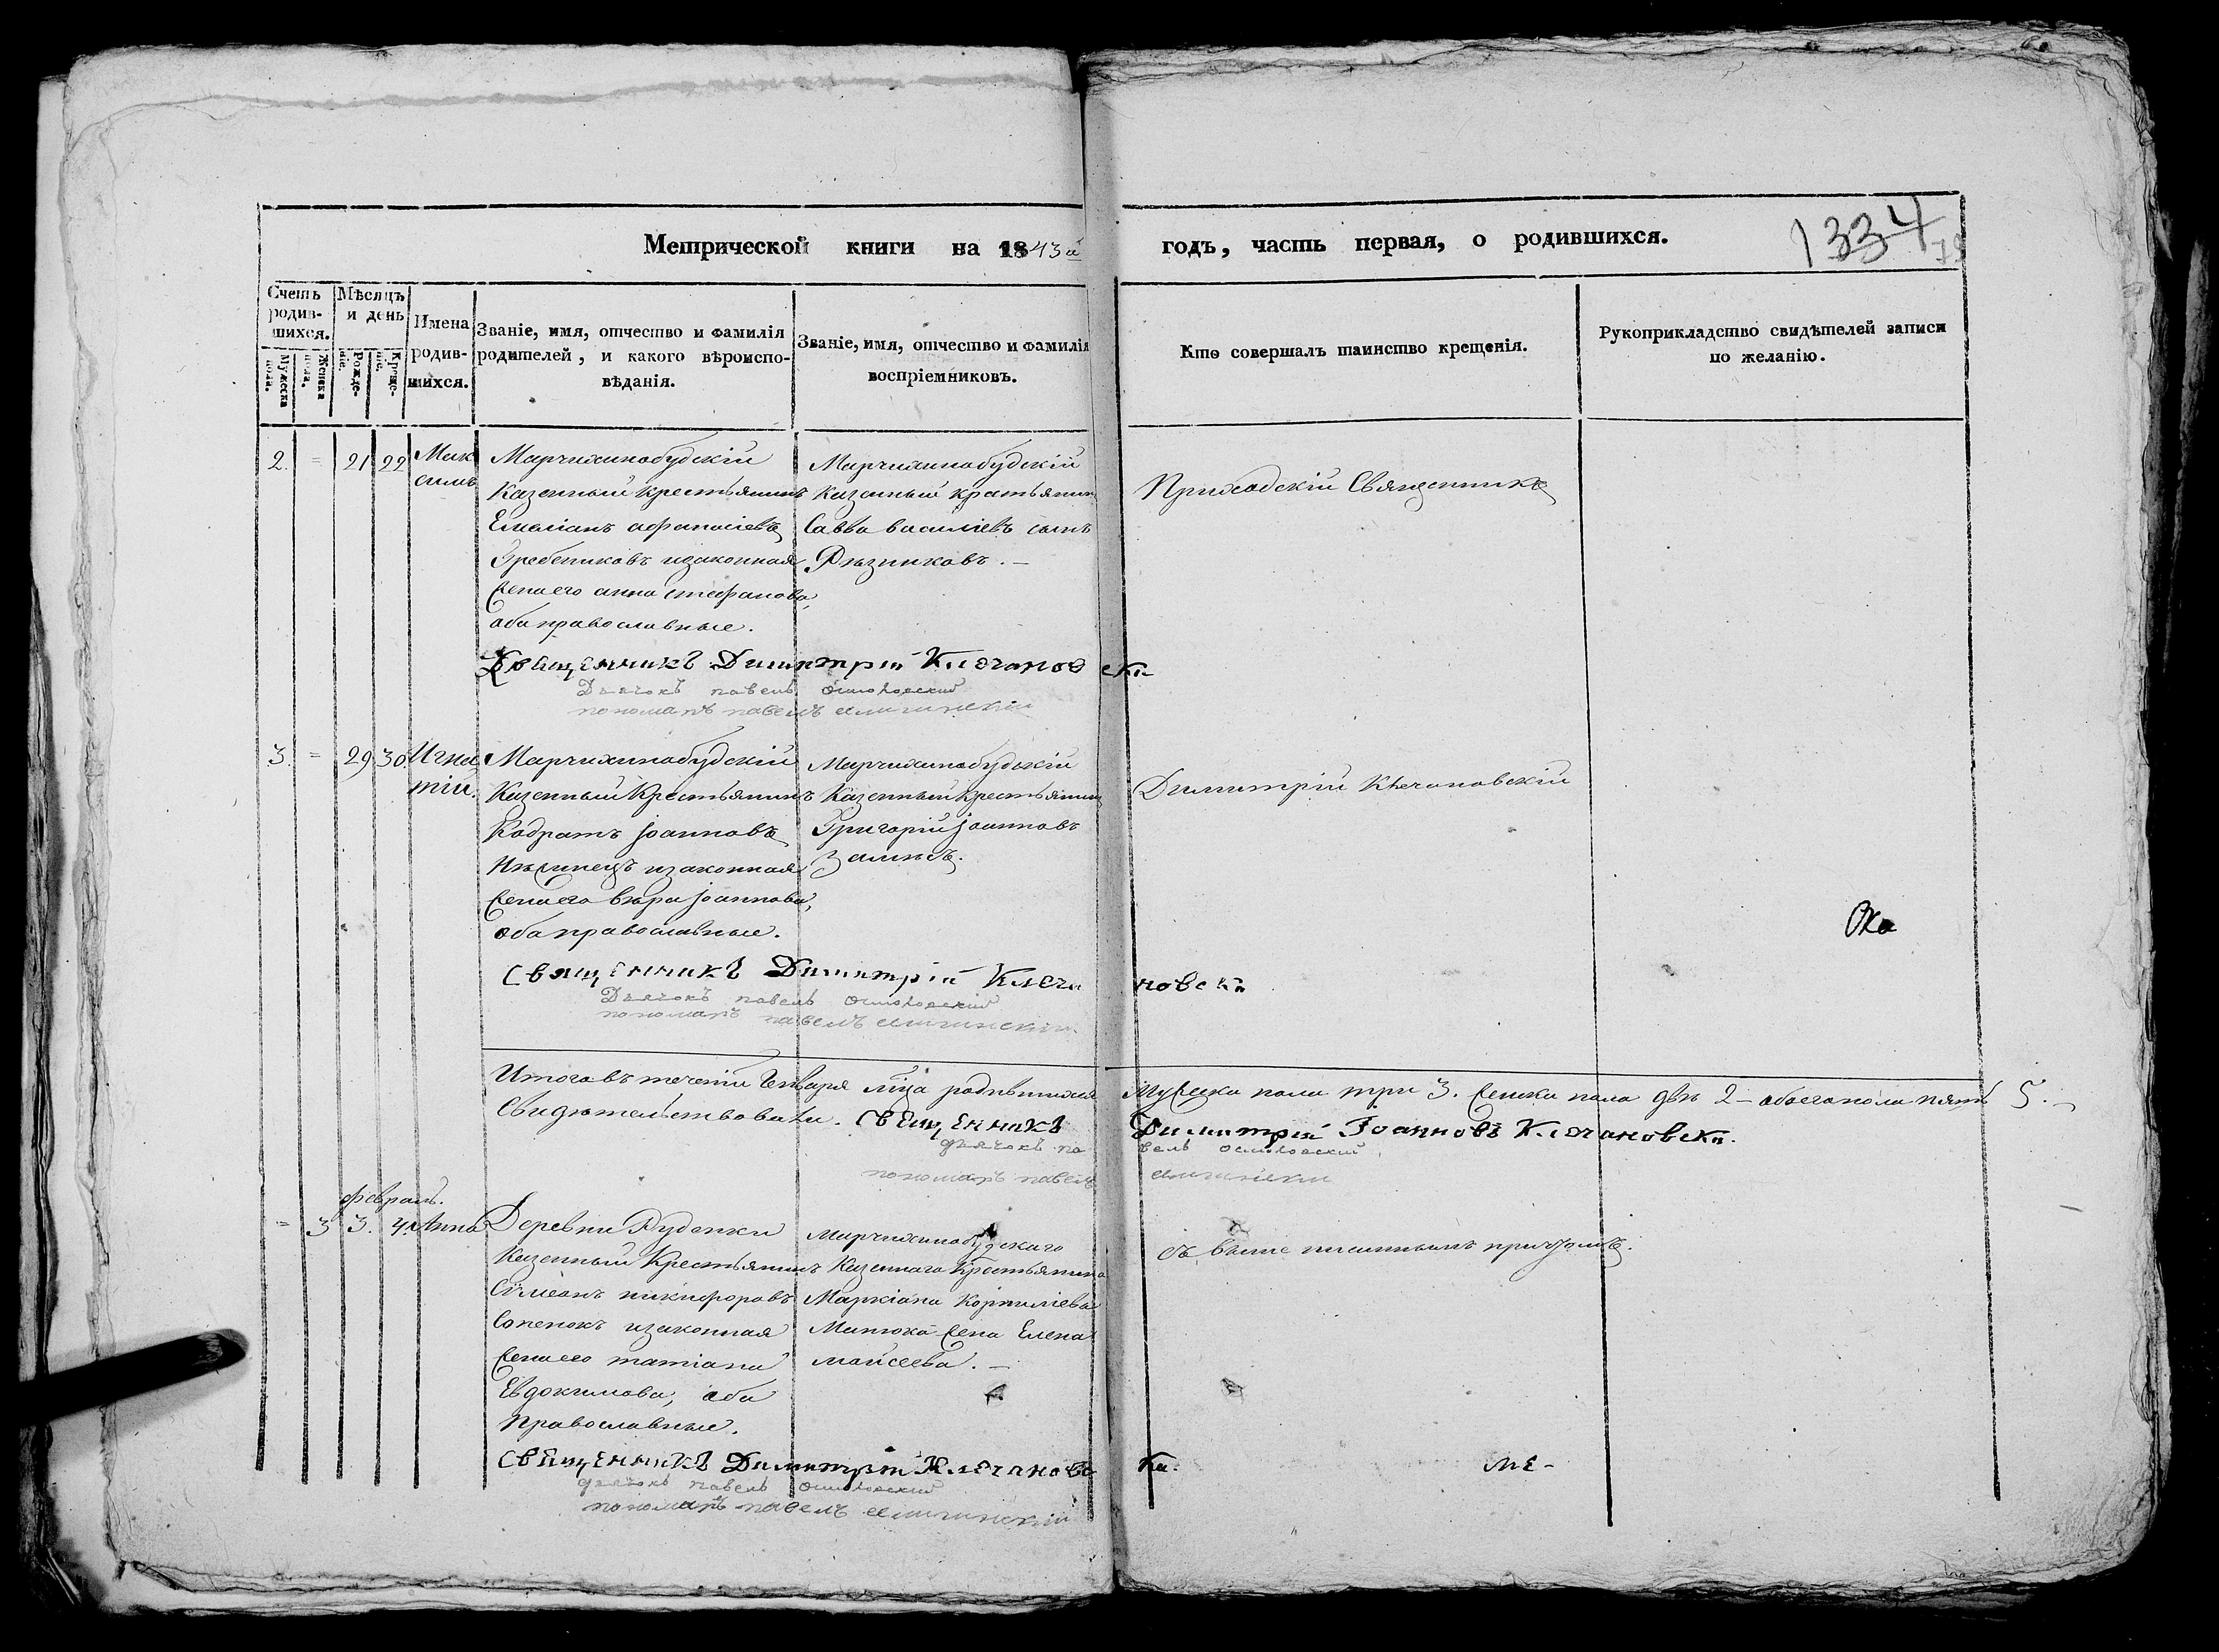 Метрической книги на 1843й годъ, часть первая, о родившихся.
1334
Счетъ родив-шихся.
Мужеска пола.
Женска пола.
Мѣсяцъ и день
Рожде-нія.
Креще-нія.
Имена родив-шихся.
Званіе, имя, отчество и фамилія родителей, и какого вѣроиспо-вѣданія.
Званіе, имя, отчество и фамилія воспріемниковъ.
Кто совершалъ таинство крещенія.
Рукоприкладство свидѣтелей записи по желанію.
2. = 21 22 Мак
симъ
Марчихинобудскій
Казенный крестьянинъ
Емеліанъ афанасіевъ
Гребениковъ изаконная
жена его анна стефанова,
оба православные.
Марчихинобудскій
Казенный крестьянинъ
Савва василіевъ сынъ
Рѣзниковъ. —
Приходскій Священникъ
Священникъ Димитрій Клечановскі
Дьячокъ павелъ
пономарь павелъ
3. = 29 30 Игна
тій.
Марчихинобудскій
Казенный Крестьянинъ
Кодратъ Іоанновъ
изаконная
жена его вѣра Іоаннова,
оба православные.
Марчихинобудскій
Казенный крестьянинъ
Григорій Іоанновъ
Димитрій Клечановскій
Око
Священникъ Димитрій Клечановскі
Дьячокъ павелъ
пономарь павелъ
Итого въ теченіи Генваря мца родившихся мужеска пола три 3. женска пола двѣ 2 — обоего пола пять 5. —
Свидѣтельствовали. Священникъ Димитрій Іоанновъ Клечановскі.
дьячокъ павелъ
пономарь павелъ
февраль.
= 3 3. 4. Анна
Деревни Руденки
Казенный Крестьянинъ
Сімеонъ никифоровъ
Сопенокъ изаконная
жена его татіана
Евдокимова, оба
православные.
Марчихинобудскаго
Казеннаго Крестьянина
Маркіана Корниліева
Матюка жена Елена
моисеева. —
съ выше писаннымъ причтомъ.
Священникъ Димитрій Клечановскі.
ме-
дьячокъ павелъ
пономарь павелъ